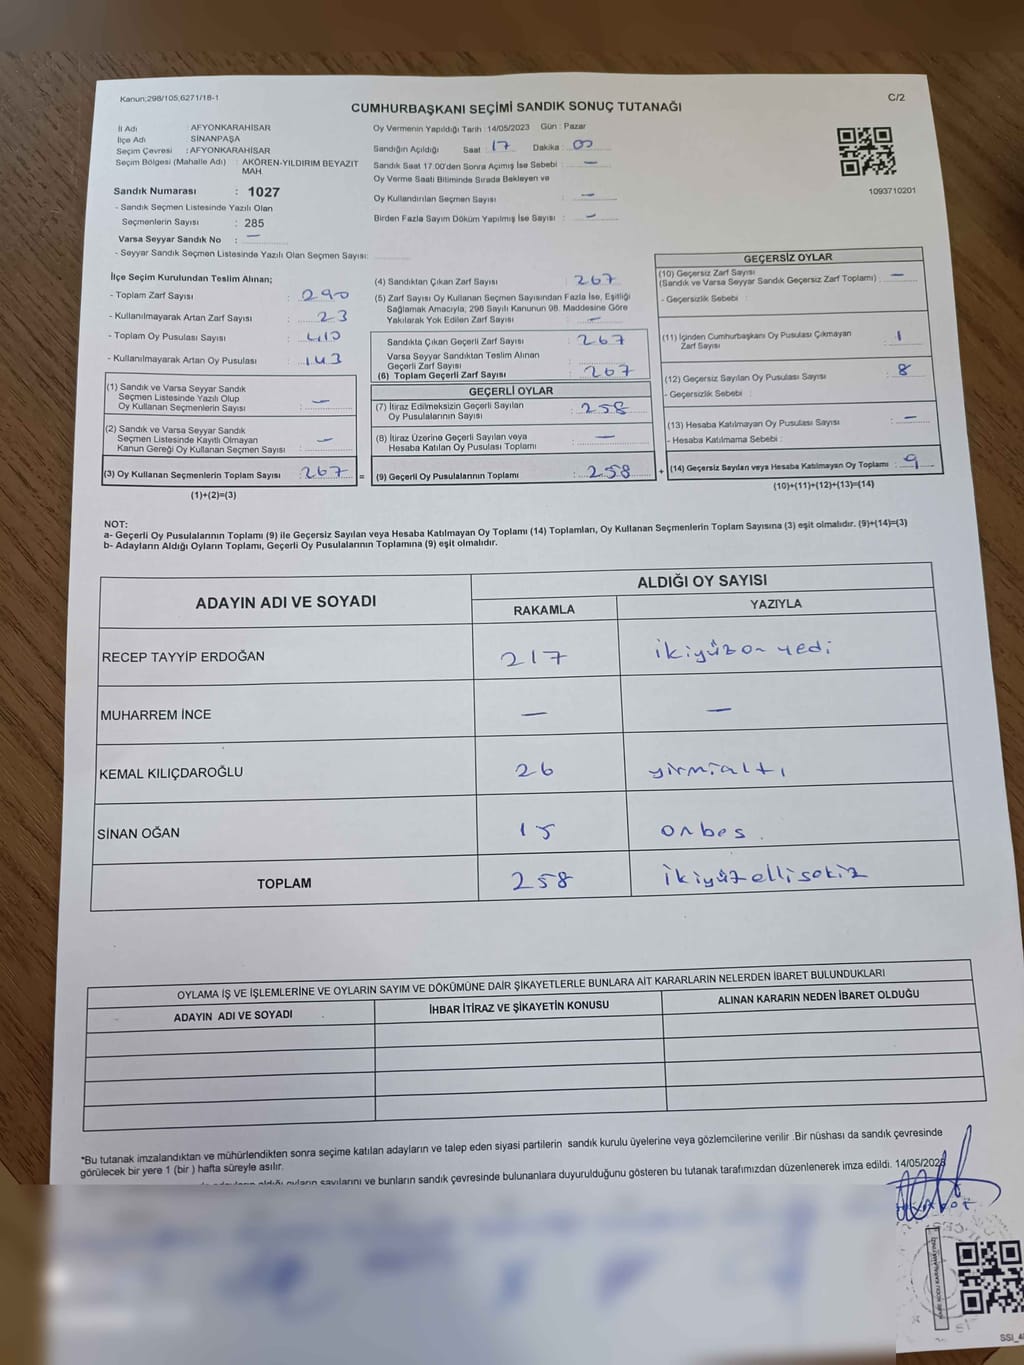 Kanun;298/105,6271/18-1
C/2
CUMHURBAŞKANI SEÇİMİ SANDIK SONUÇ TUTANAĞI
İl Adı : AFYONKARAHİSAR
İlçe Adı : SİNANPAŞA
Seçim Çevresi : AFYONKARAHİSAR
Seçim Bölgesi (Mahalle Adı) : AKÖREN-YILDIRIM BEYAZIT
MAH.
Sandık Numarası : 1027
- Sandık Seçmen Listesinde Yazılı Olan
Seçmenlerin Sayısı : 285
Varsa Seyyar Sandık No : —
- Seyyar Sandık Seçmen Listesinde Yazılı Olan Seçmen Sayısı:
Oy Vermenin Yapıldığı Tarih : 14/05/2023 Gün : Pazar
Sandığın Açıldığı Saat : 17 Dakika : 00
Sandık Saat 17.00'den Sonra Açımış İse Sebebi : —
Oy Verme Saati Bitiminde Sırada Bekleyen ve
Oy Kullandırılan Seçmen Sayısı : —
Birden Fazla Sayım Döküm Yapılmış İse Sayısı : —
1093710201
İlçe Seçim Kurulundan Teslim Alınan;
- Toplam Zarf Sayısı : 290
- Kullanılmayarak Artan Zarf Sayısı : 23
- Toplam Oy Pusulası Sayısı : 410
- Kullanılmayarak Artan Oy Pusulası : 143
(1) Sandık ve Varsa Seyyar Sandık
Seçmen Listesinde Yazılı Olup
Oy Kullanan Seçmenlerin Sayısı : —
(2) Sandık ve Varsa Seyyar Sandık
Seçmen Listesinde Kayıtlı Olmayan
Kanun Gereği Oy Kullanan Seçmen Sayısı : —
(3) Oy Kullanan Seçmenlerin Toplam Sayısı : 267 =
(1)+(2)=(3)
(4) Sandıktan Çıkan Zarf Sayısı : 267
(5) Zarf Sayısı Oy Kullanan Seçmen Sayısından Fazla İse, Eşitliği
Sağlamak Amacıyla; 298 Sayılı Kanunun 98. Maddesine Göre
Yakılarak Yok Edilen Zarf Sayısı : —
Sandıkta Çıkan Geçerli Zarf Sayısı : 267
Varsa Seyyar Sandıktan Teslim Alınan
Geçerli Zarf Sayısı :
(6) Toplam Geçerli Zarf Sayısı : 267
GEÇERLİ OYLAR
(7) İtiraz Edilmeksizin Geçerli Sayılan
Oy Pusulalarının Sayısı : 258
(8) İtiraz Üzerine Geçerli Sayılan veya
Hesaba Katılan Oy Pusulası Toplamı : —
(9) Geçerli Oy Pusulalarının Toplamı : 258 +
GEÇERSİZ OYLAR
(10) Geçersiz Zarf Sayısı
(Sandık ve Varsa Seyyar Sandık Geçersiz Zarf Toplamı) : —
- Geçersizlik Sebebi :
(11) İçinden Cumhurbaşkanı Oy Pusulası Çıkmayan
Zarf Sayısı : 1
(12) Geçersiz Sayılan Oy Pusulası Sayısı : 8
- Geçersizlik Sebebi :
(13) Hesaba Katılmayan Oy Pusulası Sayısı : —
- Hesaba Katılmama Sebebi :
(14) Geçersiz Sayılan veya Hesaba Katılmayan Oy Toplamı : 9
(10)+(11)+(12)+(13)=(14)
NOT:
a- Geçerli Oy Pusulalarının Toplamı (9) ile Geçersiz Sayılan veya Hesaba Katılmayan Oy Toplamı (14) Toplamları, Oy Kullanan Seçmenlerin Toplam Sayısına (3) eşit olmalıdır. (9)+(14)=(3)
b- Adayların Aldığı Oyların Toplamı, Geçerli Oy Pusulalarının Toplamına (9) eşit olmalıdır.
ADAYIN ADI VE SOYADI
ALDIĞI OY SAYISI
RAKAMLA YAZIYLA
RECEP TAYYİP ERDOĞAN 217 ikiyüzon yedi
MUHARREM İNCE — —
KEMAL KILIÇDAROĞLU 26 yirmialtı
SİNAN OĞAN 15 onbes.
TOPLAM 258 ikiyüzellisekiz
OYLAMA İŞ VE İŞLEMLERİNE VE OYLARIN SAYIM VE DÖKÜMÜNE DAİR ŞİKAYETLERLE BUNLARA AİT KARARLARIN NELERDEN İBARET BULUNDUKLARI
ADAYIN ADI VE SOYADI İHBAR İTİRAZ VE ŞİKAYETİN KONUSU ALINAN KARARIN NEDEN İBARET OLDUĞU
*Bu tutanak imzalandıktan ve mühürlendikten sonra seçime katılan adayların ve talep eden siyasi partilerin sandık kurulu üyelerine veya gözlemcilerine verilir .Bir nüshası da sandık çevresinde
görülecek bir yere 1 (bir ) hafta süreyle asılır.
oyların sayılarını ve bunların sandık çevresinde bulunanlara duyurulduğunu gösteren bu tutanak tarafımızdan düzenlenerek imza edildi. 14/05/2023